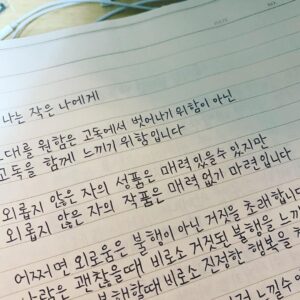 나는 작은 나에게
그대를 원함은 고독에서 벗어나기 위함이 아닌
고독을 함께 느끼기 위함입니다
외롭지 않은 자의 성품은 매력 있을수 있지만
외롭지 않은 자의 작품은 매력 없기 마련입니다
어쩌면 외로움은 불행이 아닌 거짓을 초래합니
사람은 괜찮을때 비로소 거짓된 불행을 느끼
불행할때 비로소 진정한 행복을
느낄수